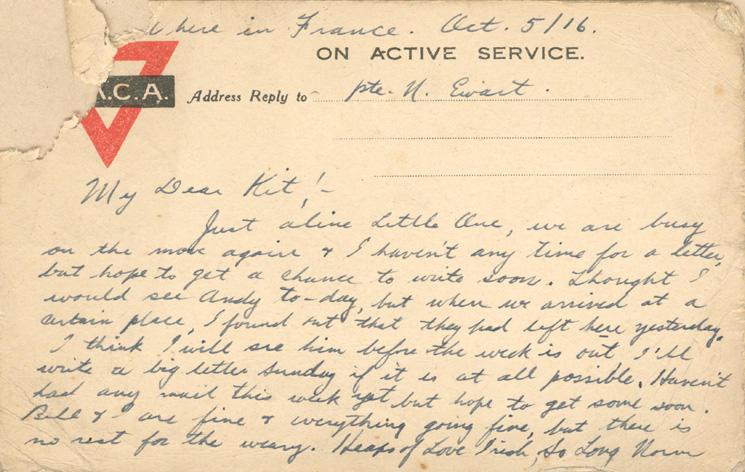 where in France. Oct. 5/16.
ON ACTIVE SERVICE.
.C.A.
Address Reply to Pte. N. Ewart.
My Dear Kit!-
Just a line Little One, we are busy
on the move again & I haven't any time for a letter,
but hope to get a chance to write soon. Thought I
would see Andy to-day, but when we arrived at a
certain place, I found out that they had left here yesterday.
I think I will see him before the week is out I'll
write a big letter Sunday if it is at all possible. Haven't
had any mail this week yet but hope to get some soon.
Bill & I are fine & everything going fine, but there is
no rest for the weary. Heaps of Love Trish, So Long Norm